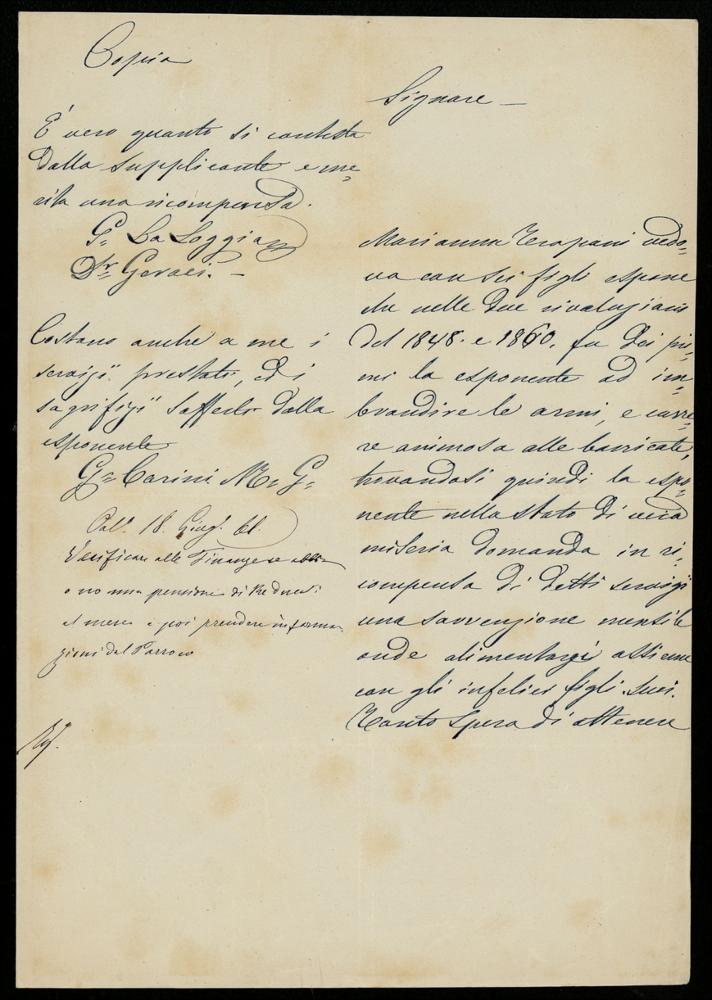 Copia
È vero quanto si contesta
dalla supplicante e me=
rita una ricompensa.
G. La Loggia
Dr. Geraci. –
Costano anche a me i
servizii prestati, ed i
sagrifizii sofferti dalla
esponente
G. Carini M. G.
18. Giug. 61.
Verificare alle Finanze se abbia
o no una pensione di tre ducati
al mese e poi prendere informa
zioni dal Parroco
Signore –
Marianna Trapani vedo=
va con sei figli espone
che nelle due rivoluzioni
del 1848. e 1860. fu dei pri=
mi la esponente ad im=
brandire le armi, e corre=
re animosa alle barricate,
trovandosi quindi la espo=
nente nello stato di vera
miseria domanda in ri=
compensa di detti servizi
una sovvenzione mensile
onde alimentarsi assieme
con gli infelici figli suoi.
Tanto spera di ottenere